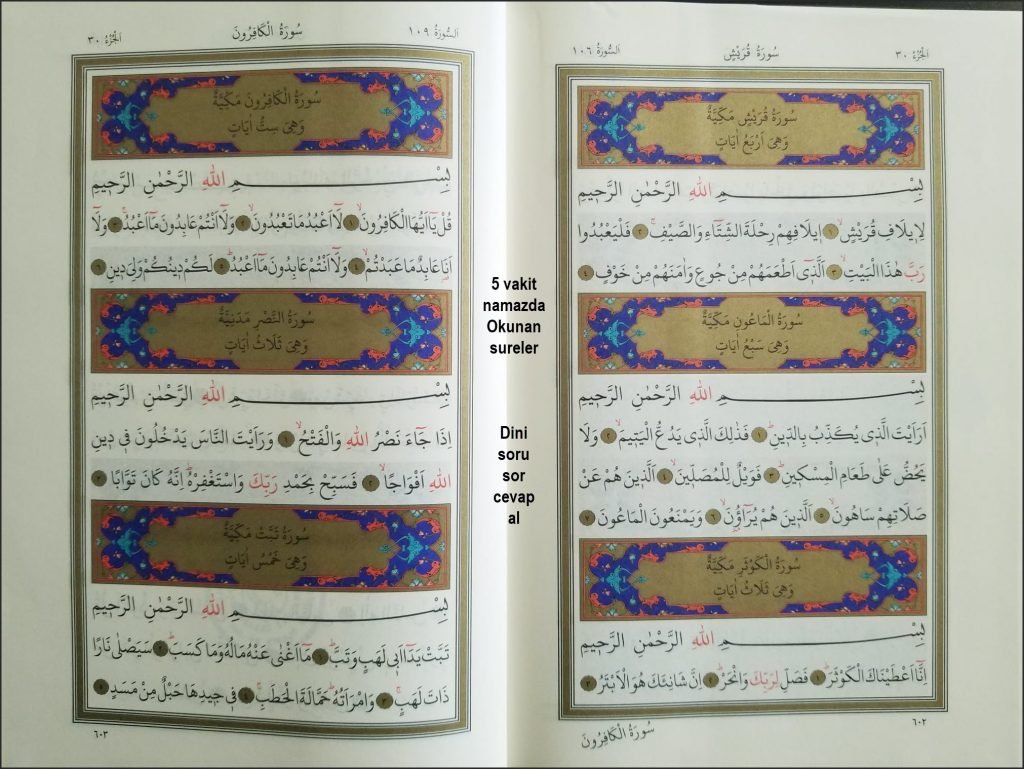 اَلْجُزْءُ ٣٠
سُورَةُ قُرَيْشٍ
اَلسُّورَةُ ١٠٦
سُورَةُ قُرَيْشٍ مَكِّيَّةٌ
وَهِىَ اَرْبَعُ اٰيَاتٍ
بِسْمِ اللّٰهِ الرَّحْمٰنِ الرَّحٖيمِ
لِاٖيلَافِ قُرَيْشٍۙ ١ اٖيلَافِهِمْ رِحْلَةَ الشِّتَٓاءِ وَالصَّيْفِۚ ٢ فَلْيَعْبُدُوا
رَبَّ هٰذَا الْبَيْتِۙ ٣ اَلَّذٖٓى اَطْعَمَهُمْ مِنْ جُوعٍ وَاٰمَنَهُمْ مِنْ خَوْفٍ ٤
سُورَةُ الْمَاعُونِ مَكِّيَّةٌ
وَهِىَ سَبْعُ اٰيَاتٍ
بِسْمِ اللّٰهِ الرَّحْمٰنِ الرَّحٖيمِ
اَرَاَيْتَ الَّذٖى يُكَذِّبُ بِالدّٖينِؕ ١ فَذٰلِكَ الَّذٖى يَدُعُّ الْيَتٖيمَۙ ٢ وَلَا
يَحُضُّ عَلٰى طَعَامِ الْمِسْكٖينِؕ ٣ فَوَيْلٌ لِلْمُصَلّٖينَۙ ٤ اَلَّذٖينَ هُمْ عَنْ
صَلَاتِهِمْ سَاهُونَۙ ٥ اَلَّذٖينَ هُمْ يُرَٓاؤُ۫نَۙ ٦ وَيَمْنَعُونَ الْمَاعُونَ ٧
سُورَةُ الْكَوْثَرِ مَكِّيَّةٌ
وَهِىَ ثَلَاثُ اٰيَاتٍ
بِسْمِ اللّٰهِ الرَّحْمٰنِ الرَّحٖيمِ
اِنَّٓا اَعْطَيْنَاكَ الْكَوْثَرَؕ ١ فَصَلِّ لِرَبِّكَ وَانْحَرْؕ ٢ اِنَّ شَانِئَكَ هُوَ الْاَبْتَرُ ٣
٦٠٢
سُورَةُ الْكَافِرُونَ
اَلسُّورَةُ ١٠٩
سُورَةُ الْكَافِرُونَ
اَلْجُزْءُ ٣٠
سُورَةُ الْكَافِرُونَ مَكِّيَّةٌ
وَهِىَ سِتُّ اٰيَاتٍ
بِسْمِ اللّٰهِ الرَّحْمٰنِ الرَّحٖيمِ
قُلْ يَٓا اَيُّهَا الْكَافِرُونَۙ ١ لَٓا اَعْبُدُ مَا تَعْبُدُونَۙ ٢ وَلَٓا اَنْتُمْ عَابِدُونَ مَٓا اَعْبُدُۚ ٣ وَلَٓا
اَنَا۬ عَابِدٌ مَا عَبَدْتُمْۙ ٤ وَلَٓا اَنْتُمْ عَابِدُونَ مَٓا اَعْبُدُؕ ٥ لَكُمْ دٖينُكُمْ وَلِىَ دٖينِ ٦
سُورَةُ النَّصْرِ مَدَنِيَّةٌ
وَهِىَ ثَلَاثُ اٰيَاتٍ
بِسْمِ اللّٰهِ الرَّحْمٰنِ الرَّحٖيمِ
اِذَا جَٓاءَ نَصْرُ اللّٰهِ وَالْفَتْحُۙ ١ وَرَاَيْتَ النَّاسَ يَدْخُلُونَ فٖى دٖينِ
اللّٰهِ اَفْوَاجًاۙ ٢ فَسَبِّحْ بِحَمْدِ رَبِّكَ وَاسْتَغْفِرْهُؕ اِنَّهُ كَانَ تَوَّابًا ٣
سُورَةُ تَبَّتْ مَكِّيَّةٌ
وَهِىَ خَمْسُ اٰيَاتٍ
بِسْمِ اللّٰهِ الرَّحْمٰنِ الرَّحٖيمِ
تَبَّتْ يَدَٓا اَبٖى لَهَبٍ وَتَبَّؕ ١ مَٓا اَغْنٰى عَنْهُ مَالُهُ وَمَا كَسَبَؕ ٢ سَيَصْلٰى نَارًا
ذَاتَ لَهَبٍۚ ٣ وَامْرَاَتُهُؕ حَمَّالَةَ الْحَطَبِۚ ٤ فٖى جٖيدِهَا حَبْلٌ مِنْ مَسَدٍ ٥
٦٠٣
5 vakit
namazda
Okunan
sureler
Dini
soru
sor
cevap
al